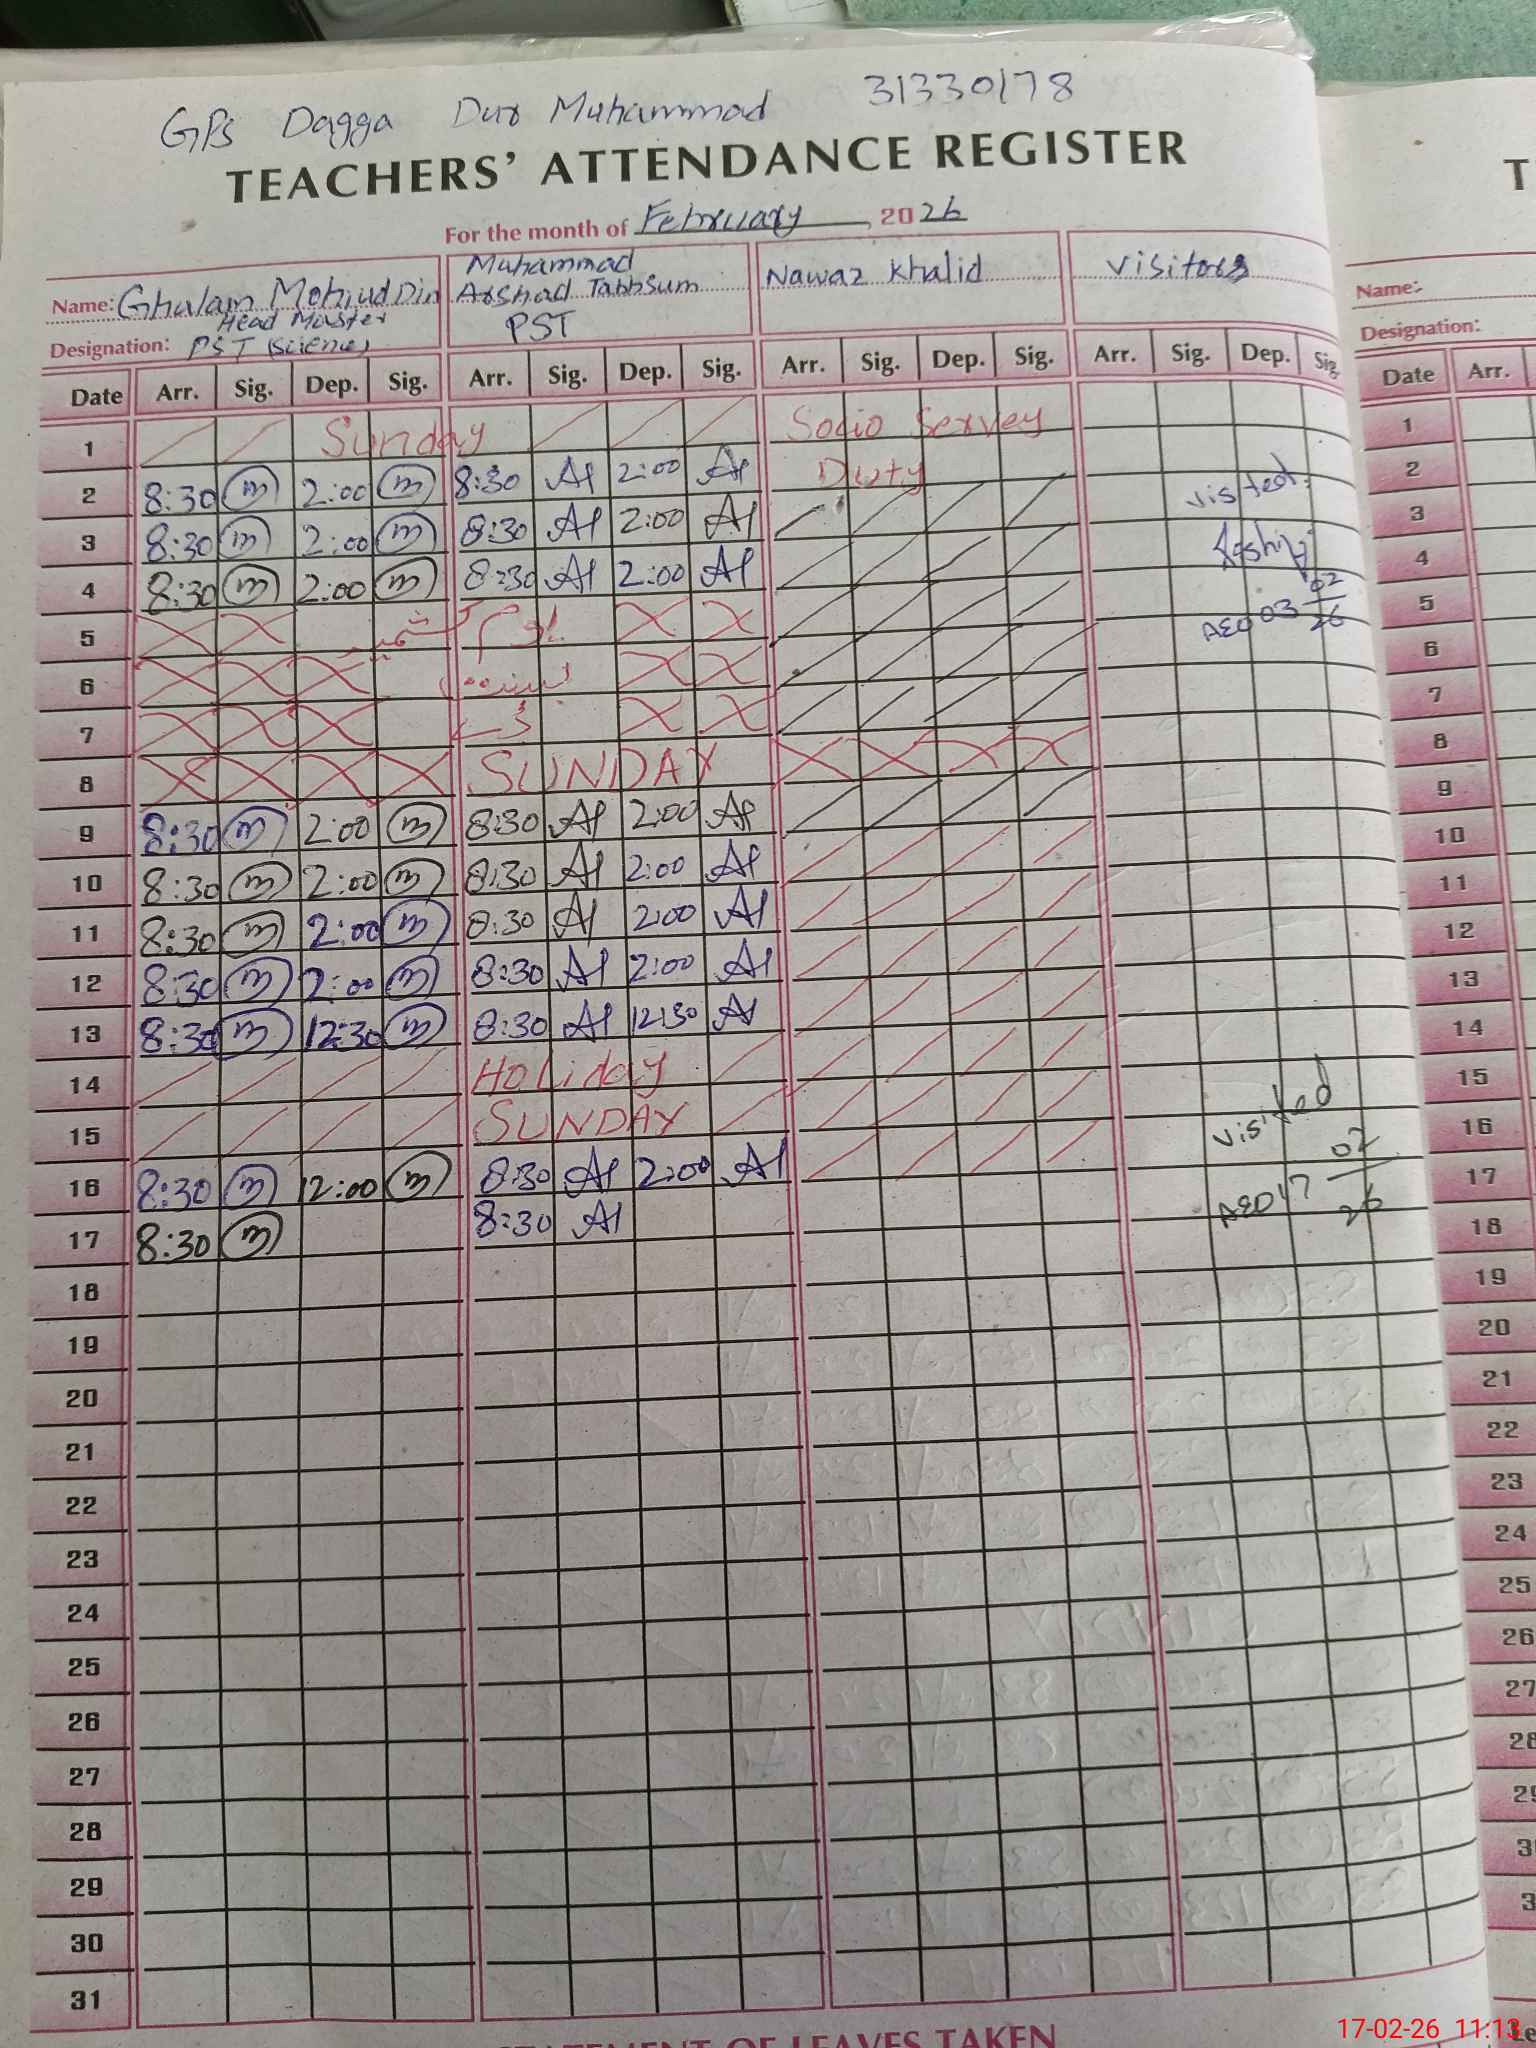 GPS Dagga Dur Muhammad 31330178
TEACHERS' ATTENDANCE REGISTER
For the month of February 2026
Name: Ghulam Mohiud Din Muhammad Arshad Tabbsum Nawaz Khalid Visitors
Head Master
Designation: PST (Science) PST
Date Arr. Sig. Dep. Sig. Arr. Sig. Dep. Sig. Arr. Sig. Dep. Sig. Arr. Sig. Dep. Sig.
1 Sunday Socio Servey
2 8:30 m 2:00 m 8:30 At 2:00 At Duty visited.
3 8:30 m 2:00 m 8:30 At 2:00 At
4 8:30 m 2:00 m 8:30 At 2:00 At
5 یوم کشمیر AEO 03 02 26
6
7
8 SUNDAY
9 8:30 m 2:00 m 8:30 At 2:00 At
10 8:30 m 2:00 m 8:30 At 2:00 At
11 8:30 m 2:00 m 8:30 At 2:00 At
12 8:30 m 2:00 m 8:30 At 2:00 At
13 8:30 m 12:30 m 8:30 At 12:30 At
14 Holiday
15 SUNDAY visited
16 8:30 m 12:00 m 8:30 At 2:00 At
17 8:30 m 8:30 At AEO 17 02 26
18
19
20
21
22
23
24
25
26
27
28
29
30
31
STATEMENT OF LEAVES TAKEN
T
Name:
Designation:
Date Arr.
1
2
3
4
5
6
7
8
9
10
11
12
13
14
15
16
17
18
19
20
21
22
23
24
25
26
27
28
17-02-26 11:13